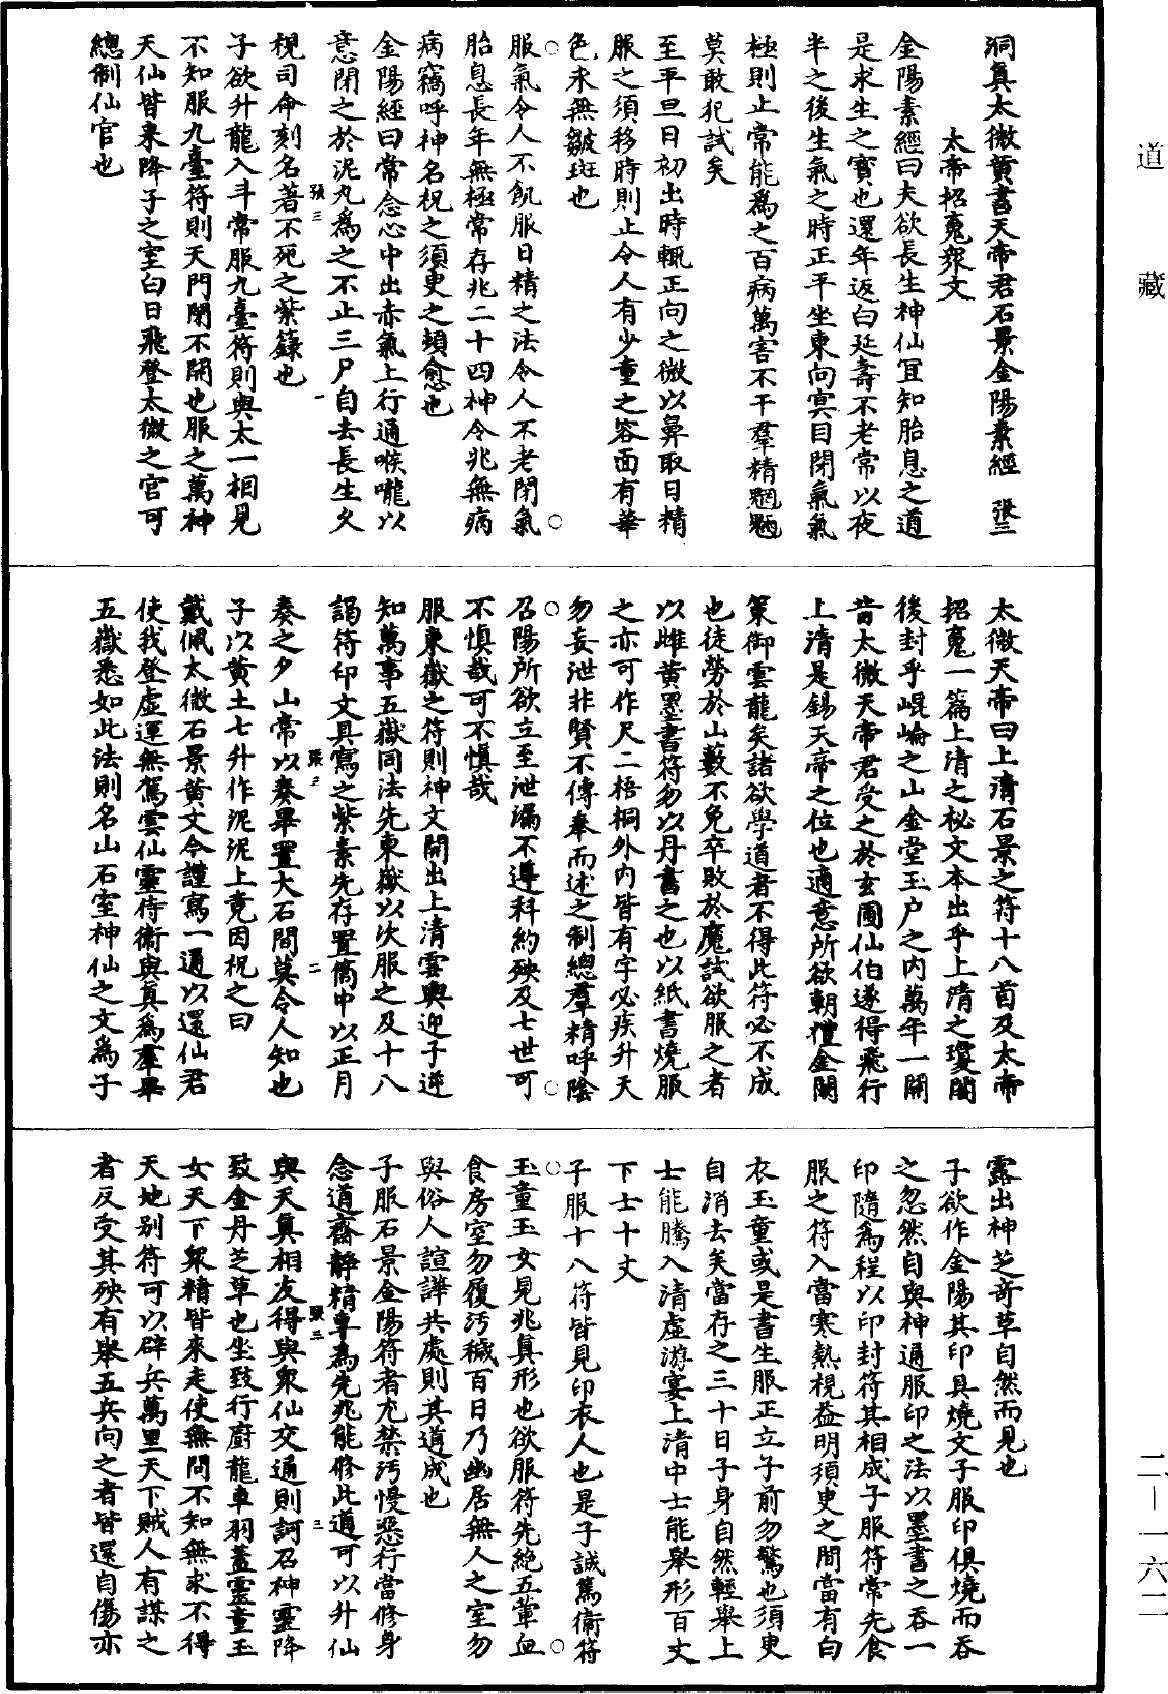 道藏
洞真太微黃書天帝君石景金陽素經 張三
太帝招䰟衆文
金陽素經曰夫欲長生神仙冝知胎息之道
是求生之寶也還年返白延壽不老常以夜
半之後生氣之時正平坐東向冥目閉氣氣
極則止常能爲之百病萬害不干羣精魍魎
莫敢犯試矣
至平旦日初出時輒正向之微以鼻取日精
服之須移時則止令人有少童之容面有華
色永無皺斑也
服氣令人不飢服日精之法令人不老閉氣
胎息長年無極常存兆二十四神令兆無病
病竊呼神名祝之須㬰之頓愈也
金陽經曰常念心中出赤氣上行通喉嚨以
意閉之於泥丸爲之不止三尸自去長生久
視司命刻名著不死之紫籙也
張三 一
子欲升龍入斗常服九臺符則與太一相見
不知服九臺符則天門閉不開也服之萬神
天仙皆来降子之室白日飛登太微之宮可
總制仙官也
太微天帝曰上清石景之符十八首及太帝
招䰟一篇上清之秘文本出乎上清之瓊闕
後封乎崐崘之山金堂玉户之内萬年一開
昔太微天帝君受之於玄圃仙伯遂得飛行
上清是錫天帝之位也適意所欲朝禮金闕
策御雲龍矣諸欲學道者不得此符必不成
也徒勞於山藪不免卒敗於魔試欲服之者
以雌黃墨書符勿以丹書之也以紙書燒服
之亦可作尺二梧桐外内皆有字必疾升天
勿妄泄非賢不傳奉而述之制總羣精呼陰
召陽所欲立至泄漏不遵科約殃及七世可
不慎哉可不慎哉
服東嶽之符則神文開出上清雲輿迎子逆
知萬事五嶽同法先東嶽以次服之及十八
謁符印文具寫之紫素先存置筩中以正月
奏之夕山常以奏畢置大石間莫令人知也
張三 二
子以黃土七升作泥泥上竟因祝之曰
戴佩太微石景黃文今謹寫一通以還仙君
使我登虛運無駕雲仙靈侍衛與真爲羣畢
五嶽悉如此法則名山石室神仙之文爲子
露出神芝竒草自然而見也
子欲作金陽其印具燒文子服印俱燒而吞
之忽然自與神通服印之法以墨書之吞一
印隨爲程以印封符其相成子服符常先食
服之符入當寒熱視益明須㬰之間當有白
衣玉童或是書生服正立子前勿驚也須㬰
自消去矣當存之三十日子身自然輕舉上
士能騰入清虛游宴上清中士能舉形百丈
下士十丈
子服十八符皆見印衣人也是子誠篤衞符
玉童玉女見兆真形也欲服符先絶五葷血
食房室勿履汚穢百日乃幽居無人之室勿
與俗人諠譁共處則其道成也
子服石景金陽符者尤禁汚慢惡行當修身
念道齋靜精專爲先兆能修此道可以升仙
與天真相友得與衆仙交通則訶召神靈降
張三 三
致金丹芝草也坐致行厨龍車羽蓋靈童玉
女天下衆精皆來走使無問不知無求不得
天地別符可以辟兵萬里天下賊人有謀之
者反受其殃有舉五兵向之者皆還自傷亦
二－一六二